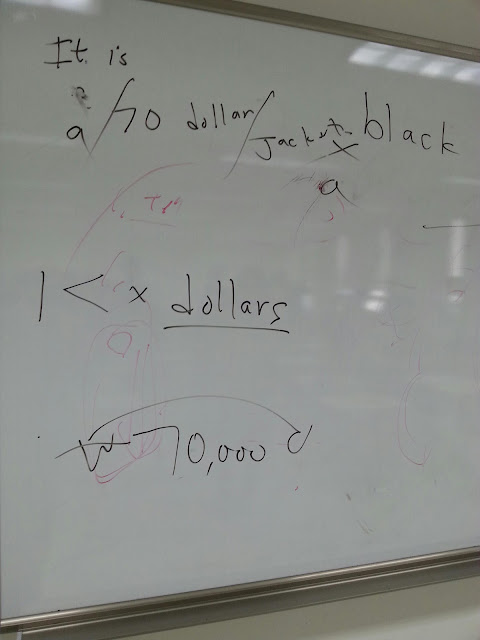 It is
a/70 dollar/Jacket black
x
a
1 < x dollars
₩ 70,000